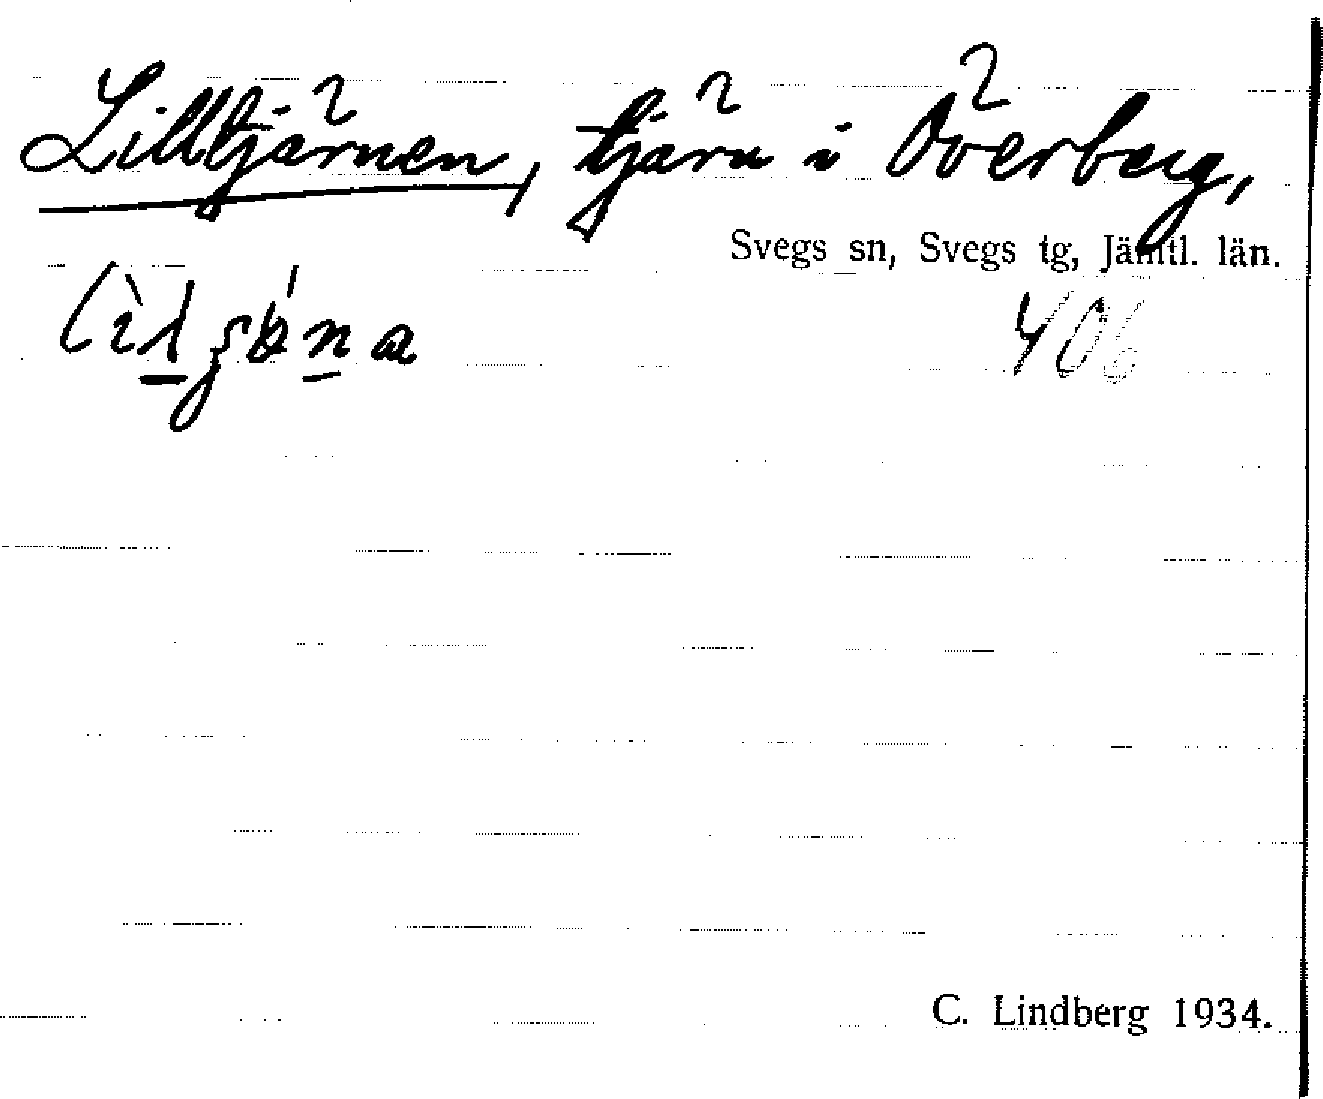 Lilltjärnen, tjärn i Överberg,
Svegs sn, Svegs tg, Jämtl. län.
406
C. Lindberg 1934.